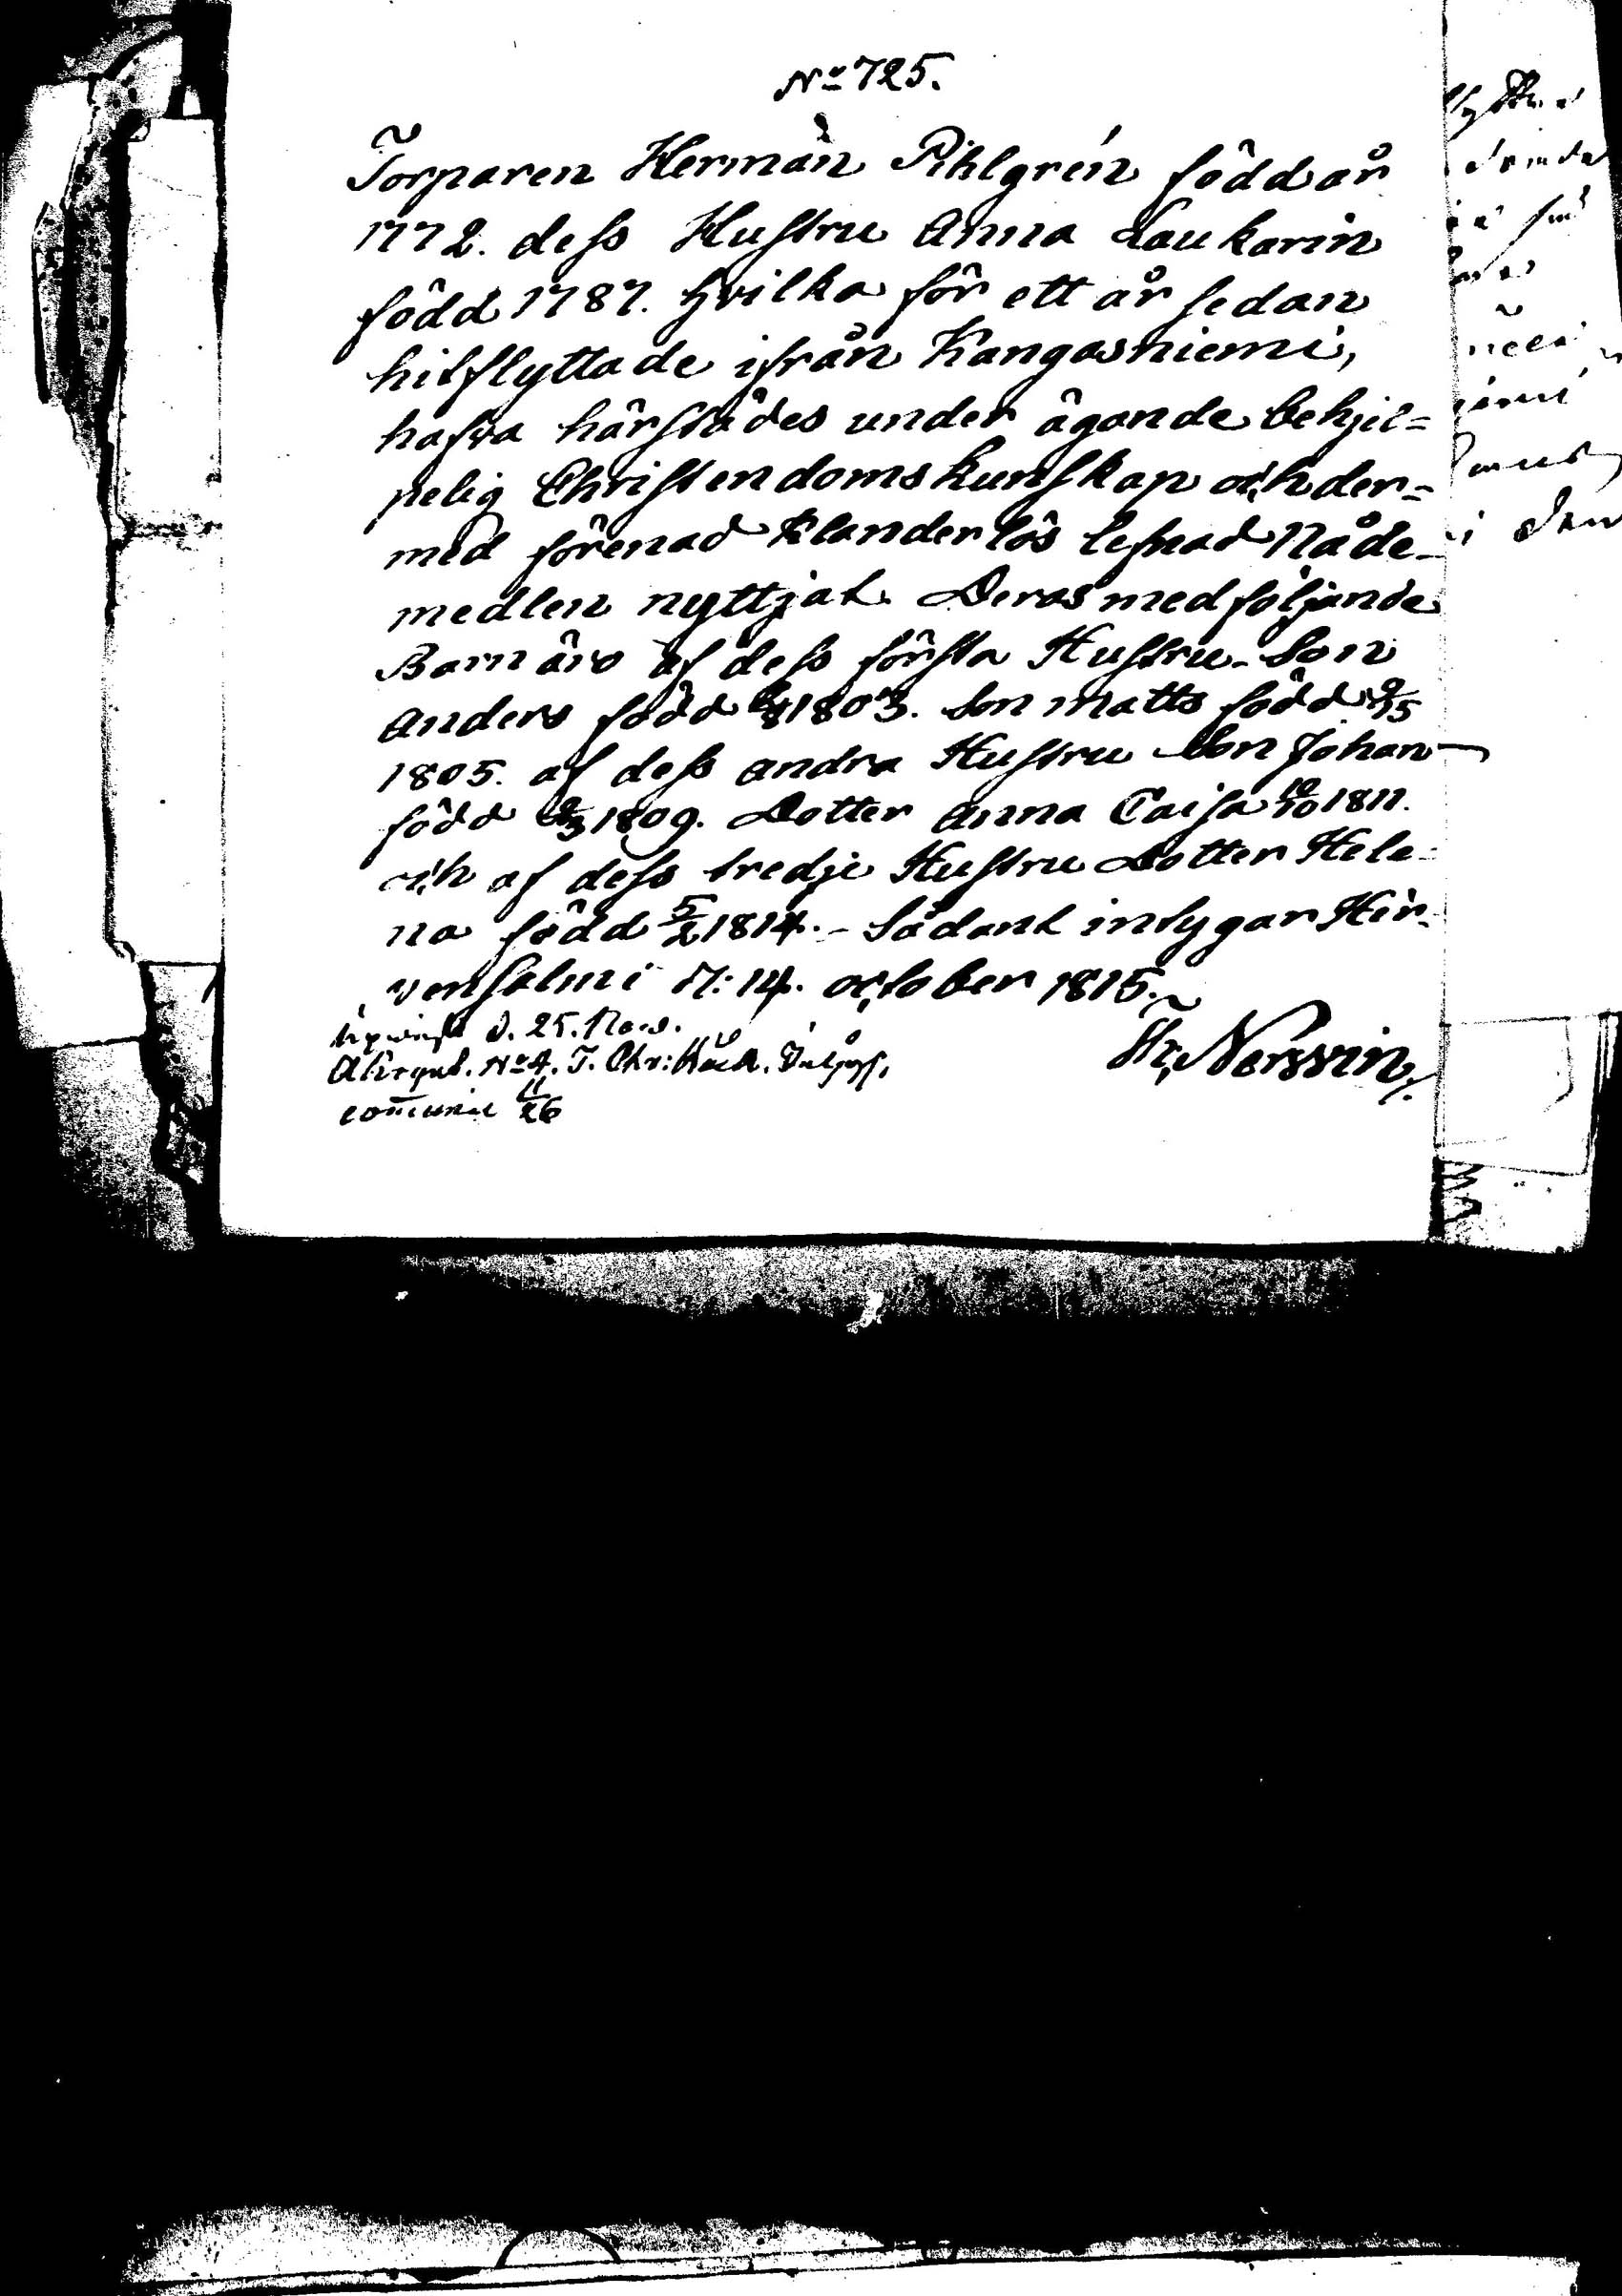 No 725.
Torparen Herman Pihlgrén född år
1772. dess Hustru Anna Laukarin
född 1787. hvilka för ett år sedan
hitflyttade ifrån Kangasniemi,
hafva härstädes under ägande behjel=
pelig Christendomskunskap och der=
med förenad klanderlös lefnad Nåde-
medlen nyttjat. Deras medföljande
Barn äro af dess första Hustru. Son
Anders född 1803. Son Matts född 9/5
1805. af dess andra Hustru Son Johan
född 1809. Dotter Anna Caisa 1811.
och af dess tredje Hustru Dotter Hele-
na född 5/2 1814. - Sådant intygar Hir-
vensalmi d: 14. october 1815.
d. 25. Nov.
No 4. T. Chr:
11/26